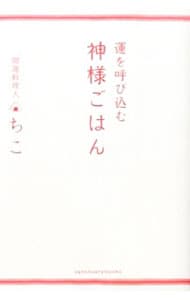 運を呼び込む
神様ごはん
開運料理人
ちこ
sanctuarybooks